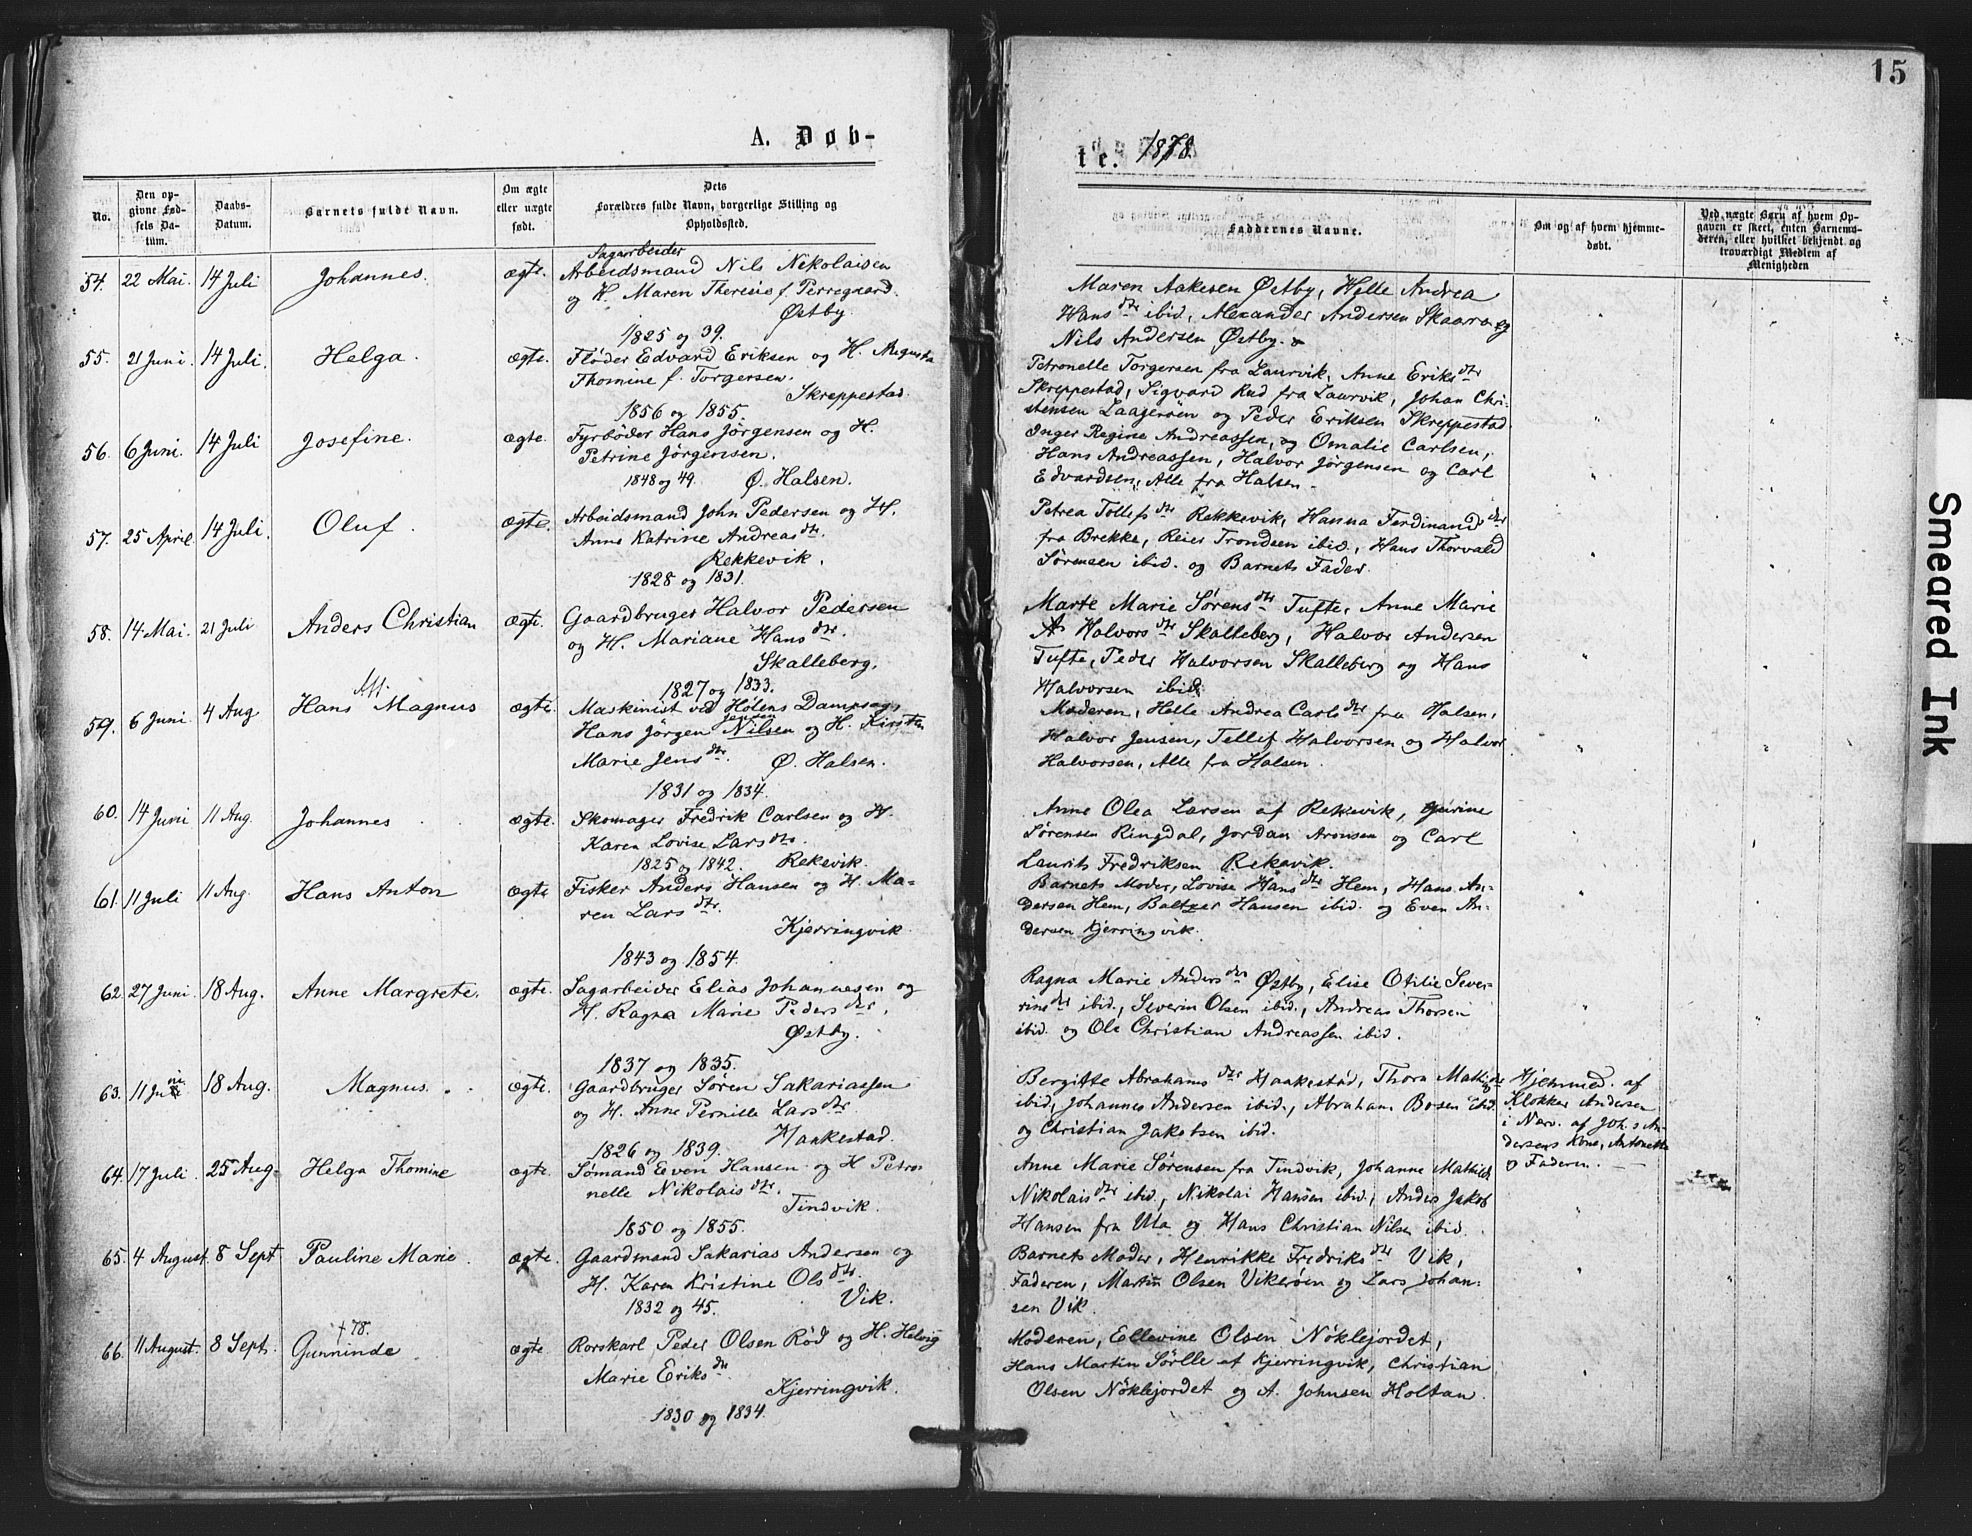 15
A. Døb-
te. 1878.
No.
Den op-
givne Fød-
sels Da-
tum.
Daabs-
Datum.
Barnets fulde Navn.
Om ægte
eller uægte
født.
Dets
Forældres fulde Navn, borgerlige Stilling og
Opholdssted.
Faddernes Navne.
Om og af hvem hjemme-
døbt.
Ved uægte Barn af hvem Op-
gaven er skeet, enten Barnemo-
deren, eller hvilket bekjendt og
troværdigt Medlem af
Menigheden
54. 22 Mai. 14 Juli Johannes. ægte.
Sagarbeider
Arbeidsmand Nils Nikolaisen
og H. Maren Theresie f. Perregaard
Østby.
1825 og 39.
Maren Aakesen Østby, Helle Andrea
Hansdtr ibid, Alexander Andersen Skaara og
Nils Andersen Østby.
55. 21 Juni. 14 Juli. Helga. ægte.
Fløder Edvard Eriksen og H. Augusta
Thomine f. Torgersen.
Skreppestad.
1856 og 1855.
Petronelle Torgersen fra Laurvik, Anne Eriksdtr
Skreppestad, Sigvard Rud fra Laurvik, Johan Chri-
stensen Laagerøen og Peder Eriksen Skreppestad.
56. 6 Juni. 14 Juli Josefine. ægte.
Fyrbøder Hans Jörgensen og H.
Petrine Jörgensen.
1848 og 49. Ø. Halsen.
Inger Regine Andreassen, og Omalie Carlsen,
Hans Andreassen, Halvor Jörgensen og Carl
Edvardsen, Alle fra Halsen.
57. 25 April. 14 Juli. Oluf. ægte.
Arbeidsmand John Pedersen og H.
Anne Katrine Andreasdtr.
Rekkevik.
1828 og 1831.
Petrea Tollefsdtr Rekkevik, Hanna Ferdinandsdtr
fra Brekke, Reier Trondsen ibid., Hans Thorvald
Sörensen ibid. og Barnets Fader.
58. 14 Mai. 21 Juli Anders Christian ægte.
Gaardbruger Halvor Pedersen
og H. Mariane Hansdtr.
Skalleberg.
1827 og 1833.
Marte Marie Sörensdtr Tufte, Anne Marie
Halvorsdtr Skalleberg, Halvor Andersen
Tufte, Peder Halvorsen Skalleberg og Hans
Halvorsen ibid.
59. 6 Juni 4 Aug Hans Magnus ægte.
Maskinist ved Holens Dampsag,
Jensen
Hans Jörgen Nilsen og H. Kirsten
Marie Jensdtr. Ø. Halsen.
1831 og 1834.
Moderen, Helle Andrea Carlsdtr fra Halsen,
Halvor Jensen, Tellef Halvorsen og Halvor
Halvorsen, Alle fra Halsen.
60. 14 Juni 11 Aug. Johannes ægte.
Skomager Fredrik Carlsen og H.
Karen Lovise Larsdtr.
1825 og 1842. Rekevik.
Anne Olea Larsen af Rekkevik, Gurine
Sörensen Ringdal, Jordan Aronsen og Carl
Laurits Fredriksen Rekevik.
61. 11 Juli 11 Aug. Hans Anton ægte
Fisker Anders Hansen og H. Ma-
ren Larsdtr.
Kjerringvik.
1843 og 1854.
Barnets Moder, Lovise Hansdtr Hem, Hans An-
dersen Hem, Baltzer Hansen ibid. og Even An-
dersen Kjerringvik.
62. 27 Juni. 18 Aug. Anne Margrete. ægte.
Sagarbeider Elias Johannesen og
H. Ragna Marie Pedersdtr.
Østby.
1837 og 1835.
Ragna Marie Andersdtr Østby, Elise Otilie Seve-
rinsdtr ibid., Severin Olsen ibid., Andreas Thorsen
ibid. og Ole Christian Andreassen ibid.
63. 11 Juni 18 Aug. Magnus. ægte.
Gaardbruger Sören Sakariassen
og H. Anne Pernille Larsdtr
Haakestad.
1826 og 1839.
Bergitte Abrahamsdtr Haakestad, Thora Mathisdtr
ibid, Johannes Andersen ibid., Abraham Bosen ibid.
og Christian Jakobsen ibid.
Hjemmed. af
Klokker Andersen
i Nærv. af Joh.s An-
dersens Kone, Antonette
og Faderen.
64. 17 Juli. 25 Aug. Helga Thomine ægte.
Sömand Even Hansen og H Petro-
nelle Nikolaisdtr.
Tindvik.
1850 og 1855.
Anne Marie Sörensen fra Tindvik, Johanne Mathilde
Nikolaisdtr ibid, Nikolai Hansen ibid, Anders Jakob
Hansen fra Ula og Hans Christian Nilsen ibid.
65. 4 August. 8 Sept Pauline Marie. ægte.
Gaardmand Sakarias Andersen og
H. Karen Kristine Olsdtr.
1832 og 45. Vik.
Barnets Moder, Henrikke Fredriksdtr Vik,
Faderen, Martin Olsen Vikerøen og Lars Johan-
sen Vik.
† 78.
66. 11 August. 8 Sept. Gunninde ægte
Rorskarl Peder Olsen Röd og H. Helvig
Marie Eriksdtr.
Kjerringvik.
1830 og 1834.
Moderen, Ellevine Olsen Nöklejordet,
Hans Martin Sörlle af Kjerringvik, Christian
Olsen Nöklejordet og A. Johnsen Holtan.
Smeared Ink